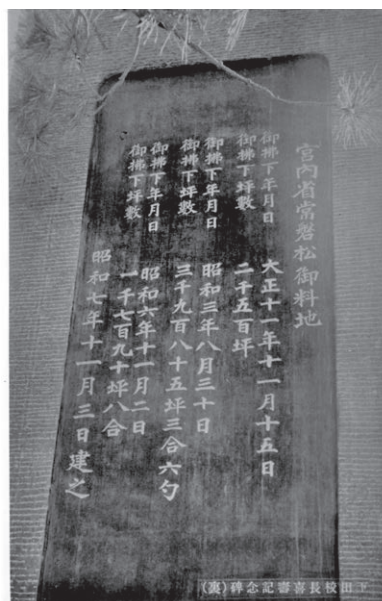 宮内省常磐松御料地
御拂下年月日 大正十一年十一月十五日
御拂下坪數 二千五百坪
御拂下年月日 昭和三年八月三十日
御拂下坪數 三千九百八十五坪三合六勺
御拂下年月日 昭和六年十一月二日
御拂下坪數 一千七百九十坪八合
昭和七年十一月三日建之
下田校長喜壽記念碑(裏)